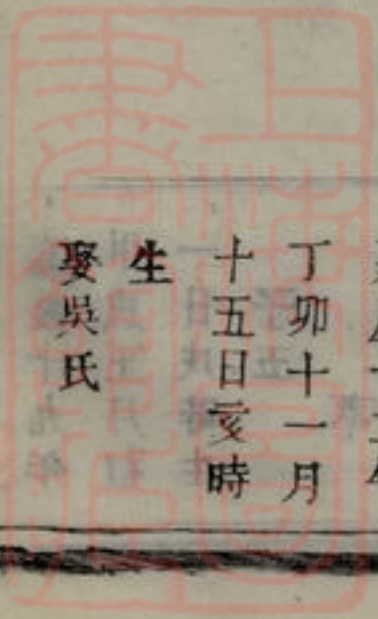 丁卯十一月
十五日亥時
生
娶吳氏